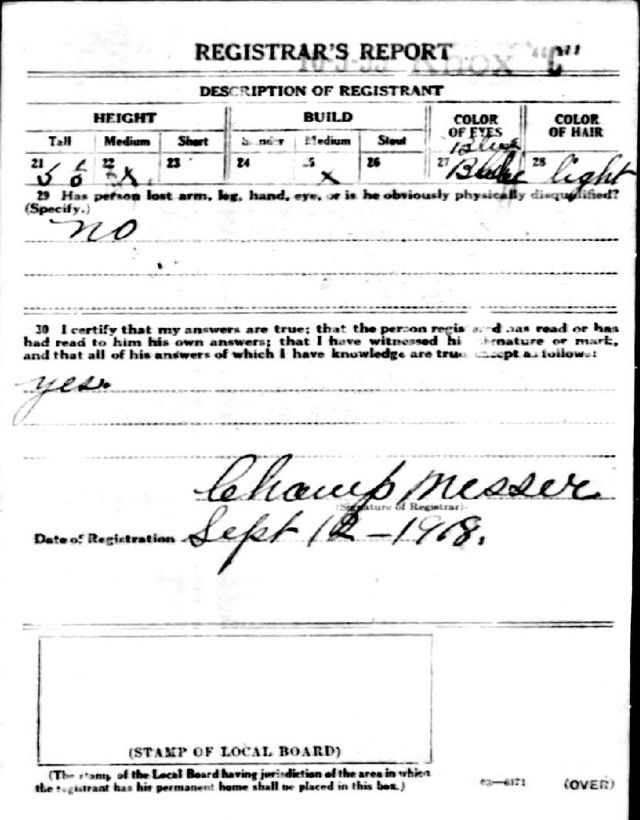 REGISTRAR'S REPORT "C"
DESCRIPTION OF REGISTRANT
HEIGHT BUILD COLOR OF EYES COLOR OF HAIR
Tall Medium Short Slender Medium Stout
21 22 23 24 25 26 27 28
x x Blue light
29 Has person lost arm, leg, hand, eye, or is he obviously physically disqualified?
(Specify.)
no
30 I certify that my answers are true; that the person registered has read or has
had read to him his own answers; that I have witnessed his signature or mark,
and that all of his answers of which I have knowledge are true, except as follows:
yes.
Champ Messer
(Signature of Registrar)
Date of Registration Sept 12-1918.
(STAMP OF LOCAL BOARD)
(The stamp of the Local Board having jurisdiction of the area in which
the registrant has his permanent home shall be placed in this box.)
03-6171 (OVER)